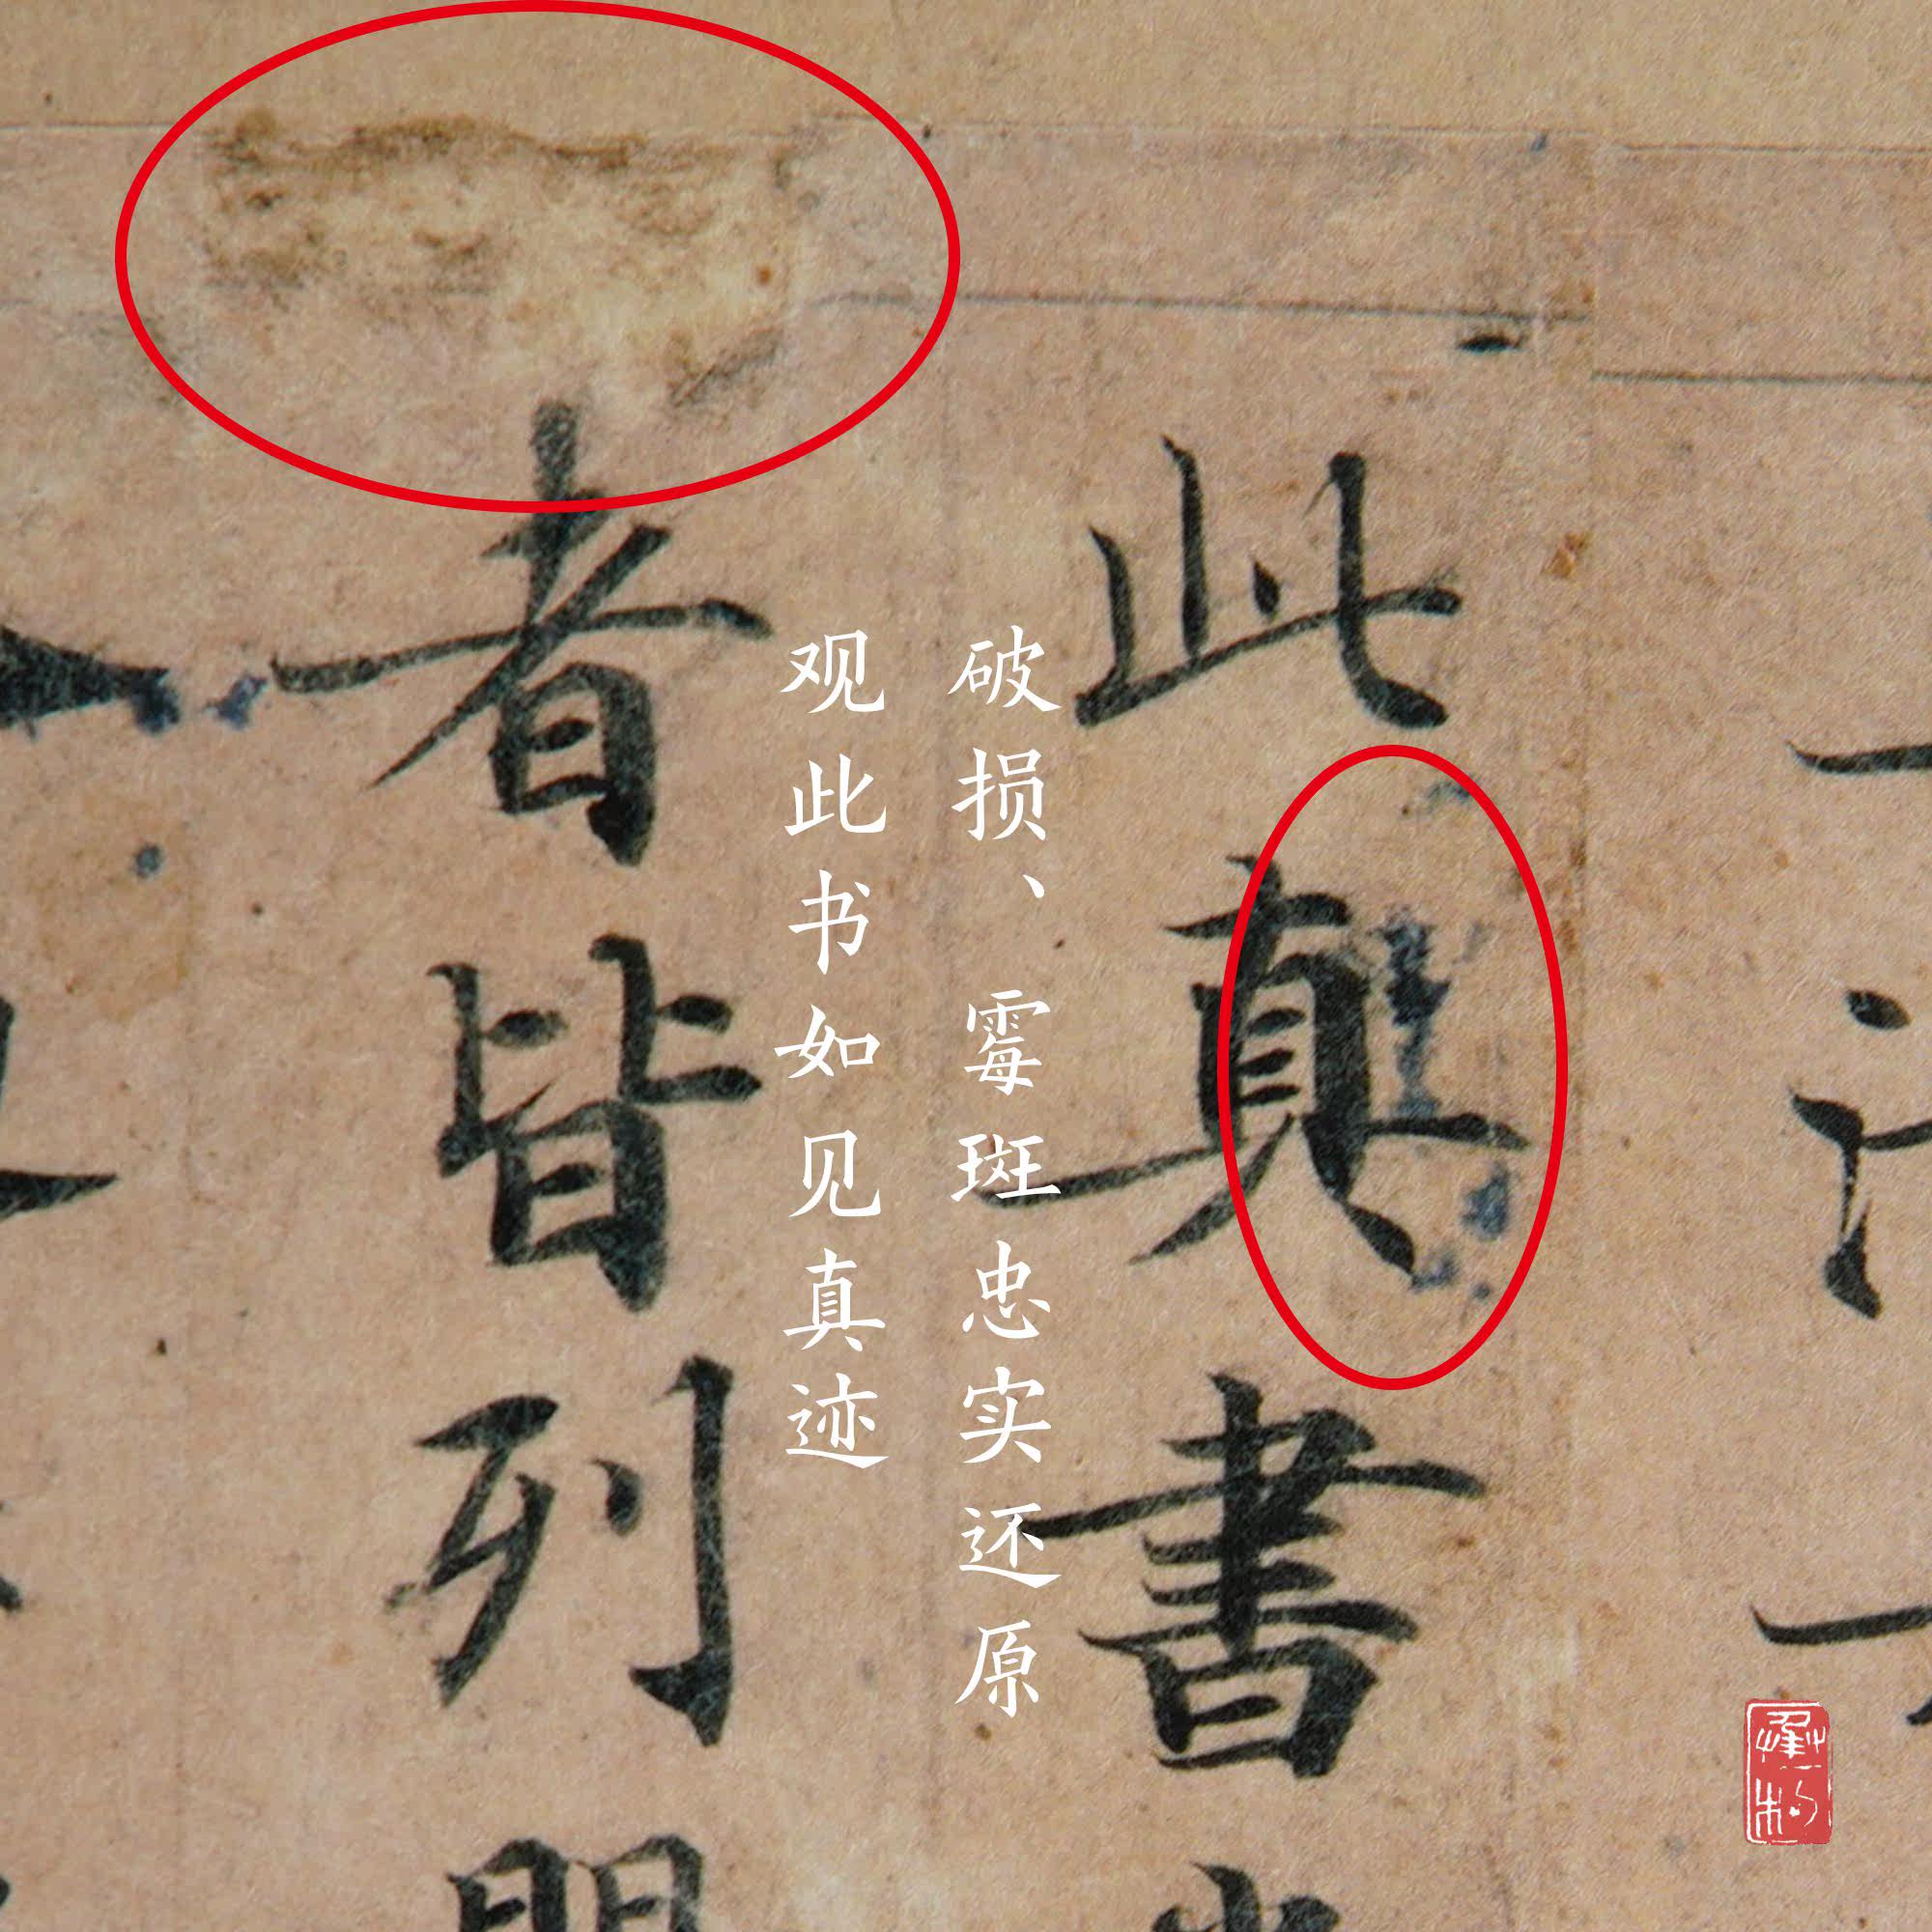 此真書
破损、霉斑忠实还原
观此书如见真迹
者皆列